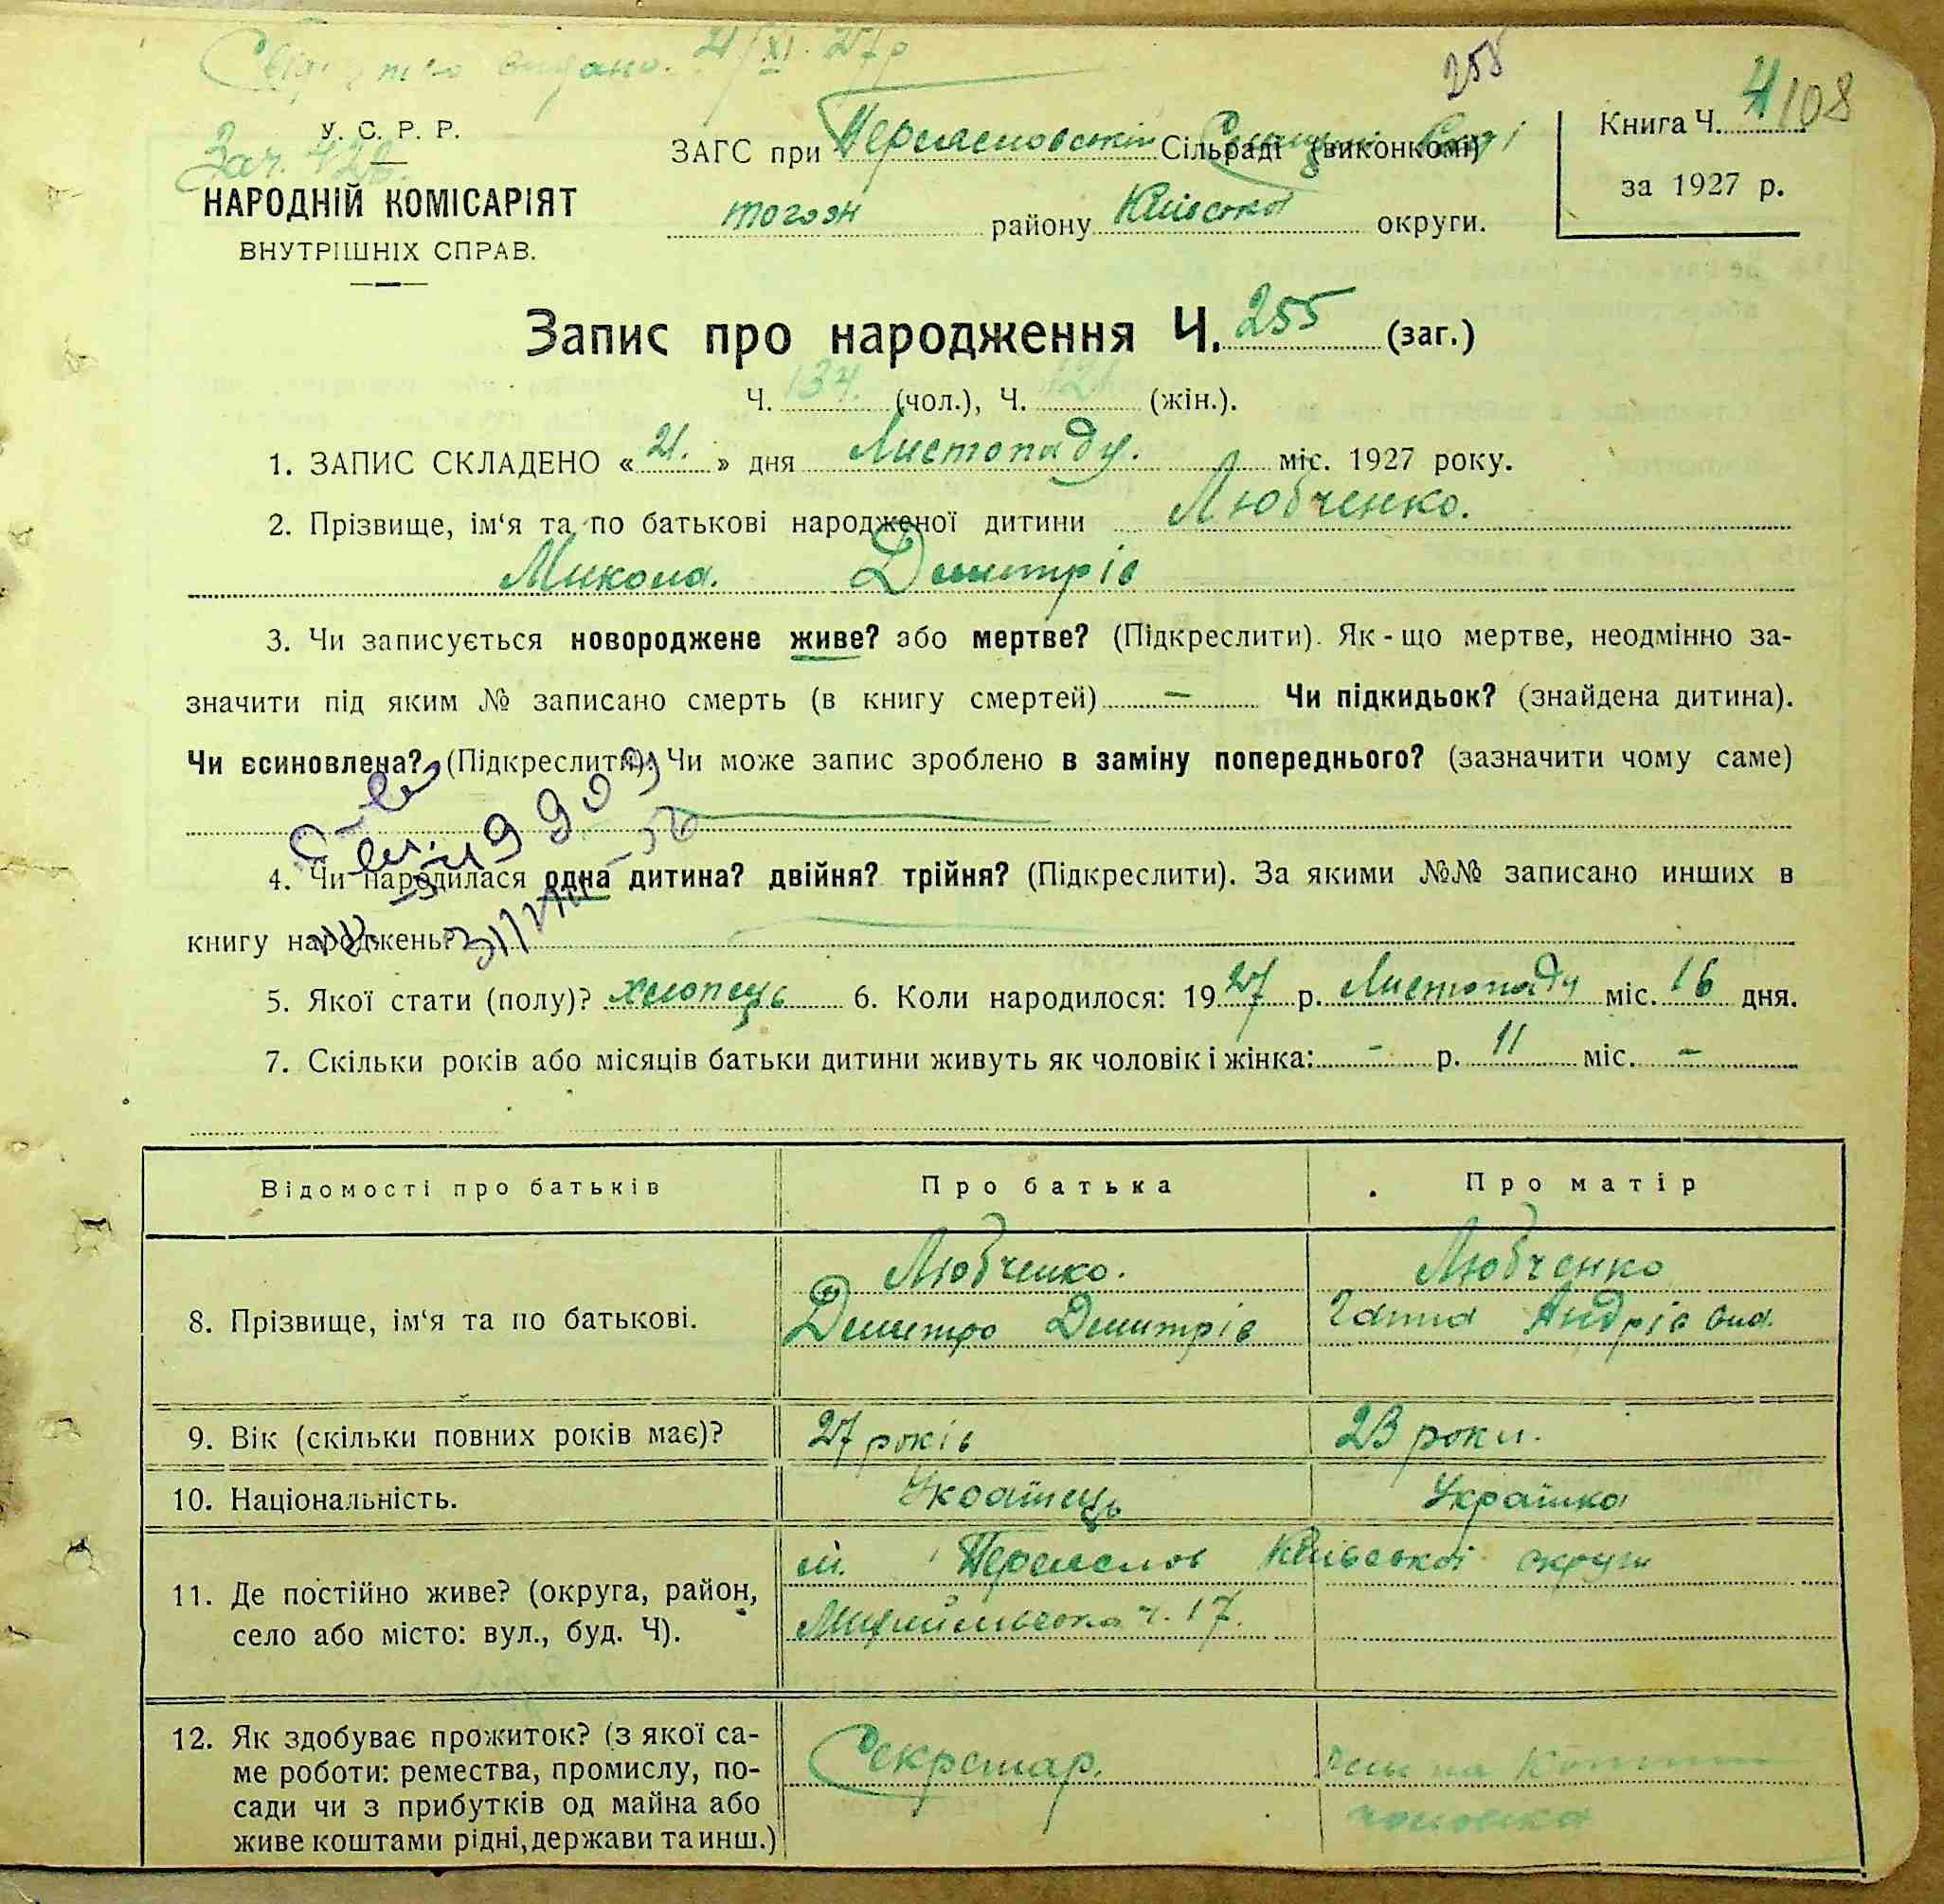 видано. 21/XI. 27р
258
У. С. Р. Р.
ЗАГС при Переяславській Сільраді (виконкомі)
Книга Ч. 4 108
Зач. 426.
НАРОДНІЙ КОМІСАРІЯТ
ВНУТРІШНІХ СПРАВ.
тогож району Київської округи.
за 1927 р.
Запис про народження Ч. 255 (заг.)
Ч. 134. (чол.), Ч. 121 (жін.).
1. ЗАПИС СКЛАДЕНО «21.» дня Листопаду. міс. 1927 року.
2. Прізвище, ім‘я та по батькові народженої дитини Любченко.
Микола. Дмитрів
3. Чи записується новороджене живе? або мертве? (Підкреслити). Як-що мертве, неодмінно за-
значити під яким № записано смерть (в книгу смертей) — Чи підкидьок? (знайдена дитина).
Чи всиновлена? (Підкреслити). Чи може запис зроблено в заміну попереднього? (зазначити чому саме)
4. Чи народилася одна дитина? двійня? трійня? (Підкреслити). За якими №№ записано инших в
книгу народжень?
5. Якої стати (полу)? хлопець 6. Коли народилося: 1927 р. Листопаду міс. 16 дня.
7. Скільки років або місяців батьки дитини живуть як чоловік і жінка: - р. 11 міс. -
Відомості про батьків Про батька Про матір
Любченко. Любченко
8. Прізвище, ім‘я та по батькові. Дмитро Дмитрів Андрієвна.
9. Вік (скільки повних років має)? 27 років 23 роки.
10. Національність. Українець Українка
м. Переяслов Київської округи
11. Де постійно живе? (округа, район,
село або місто: вул., буд. Ч). ч. 17.
12. Як здобуває прожиток? (з якої са-
ме роботи: ремества, промислу, по-
сади чи з прибутків од майна або
живе коштами рідні, держави та инш.)
Секретар.
чоловіка